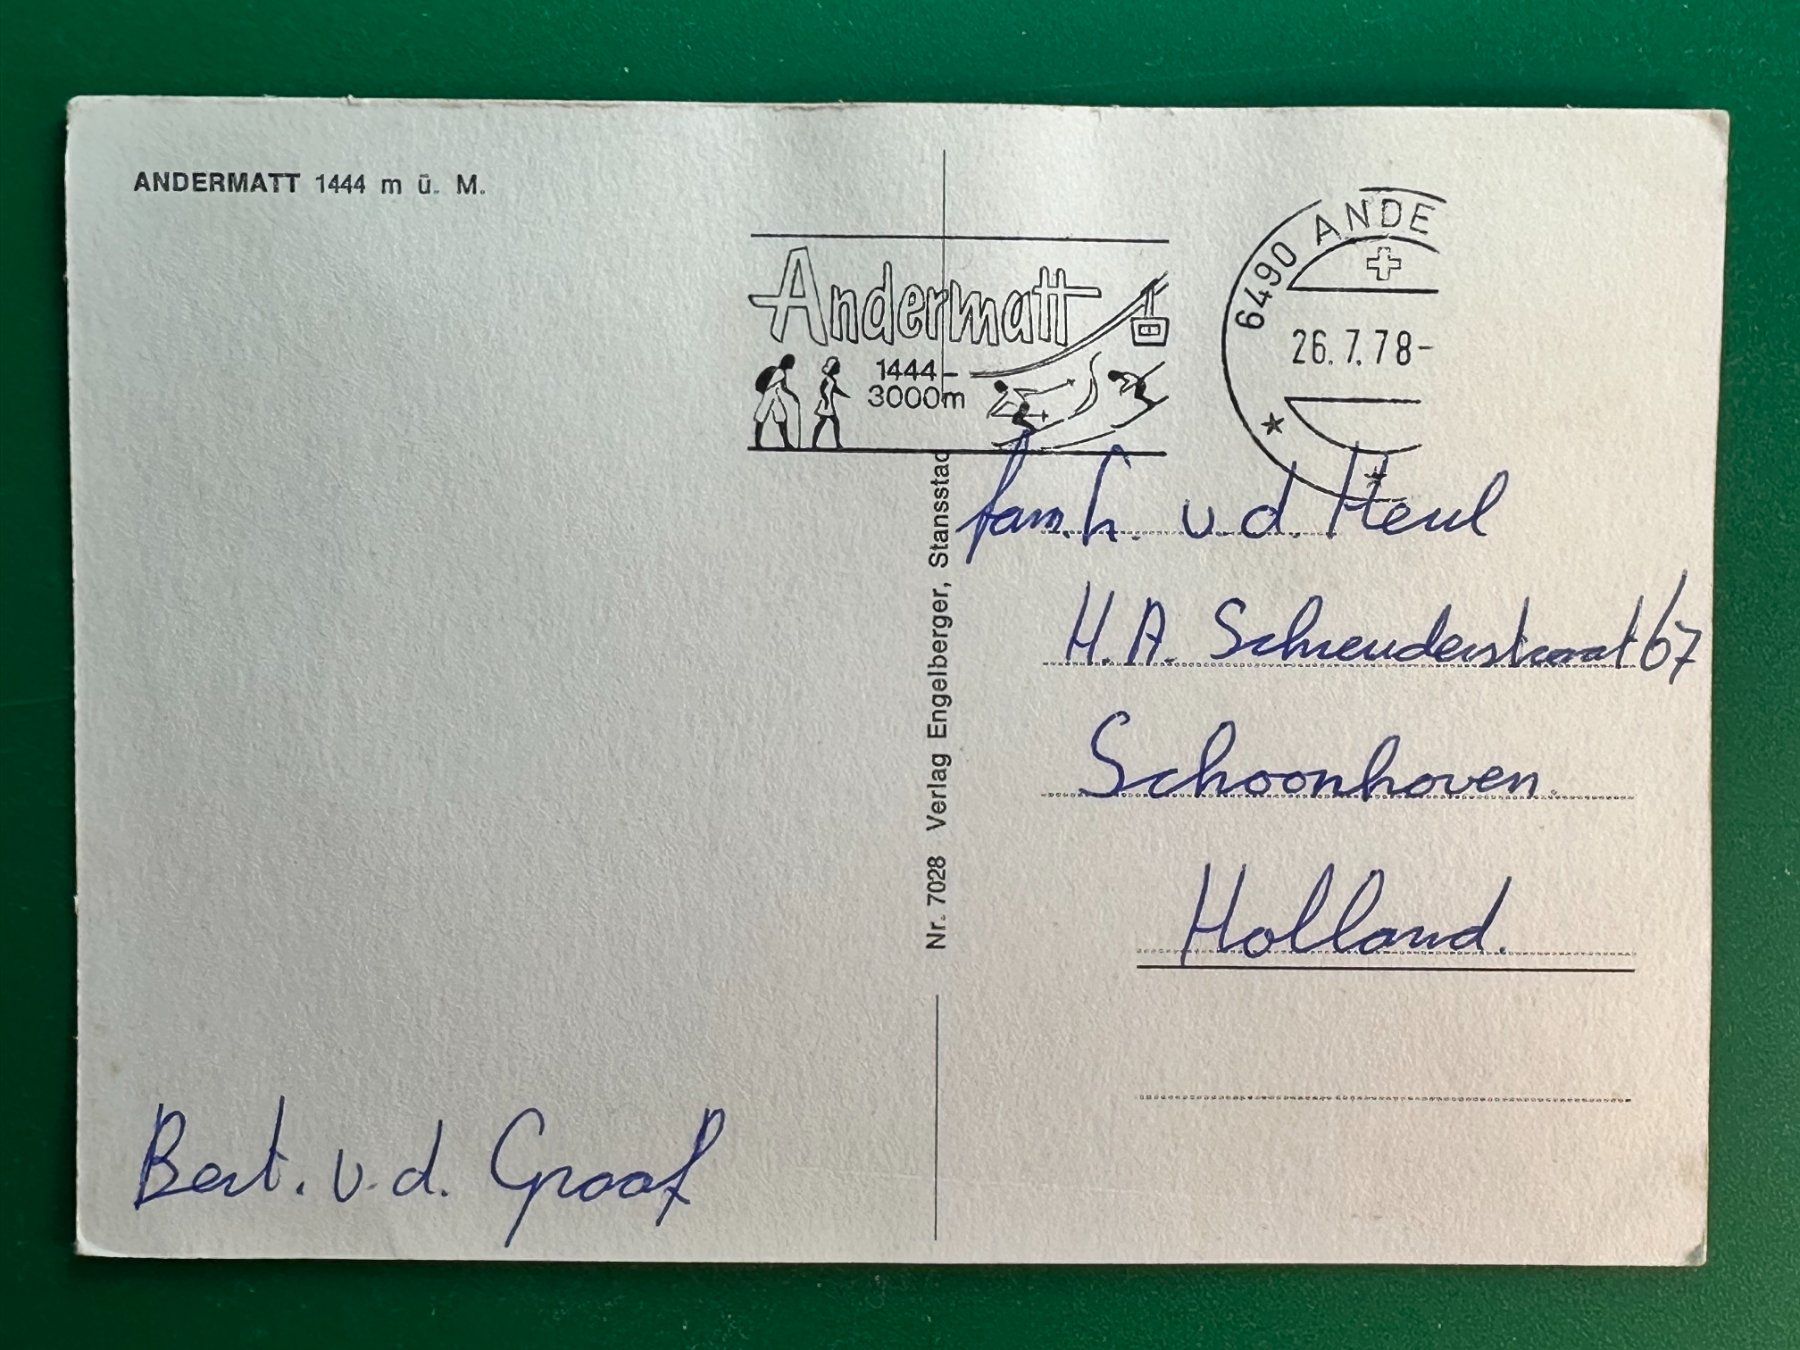 ANDERMATT 1444 m ü. M.
Andermatt
1444-
3000m
6490 ANDE
26.7.78-
Nr. 7028 Verlag Engelberger, Stansstad
fam. h. v.d. Heul
H.A. Schreuderstraat 67
Schoonhoven.
Holland.
Bert. v.d. Graaf